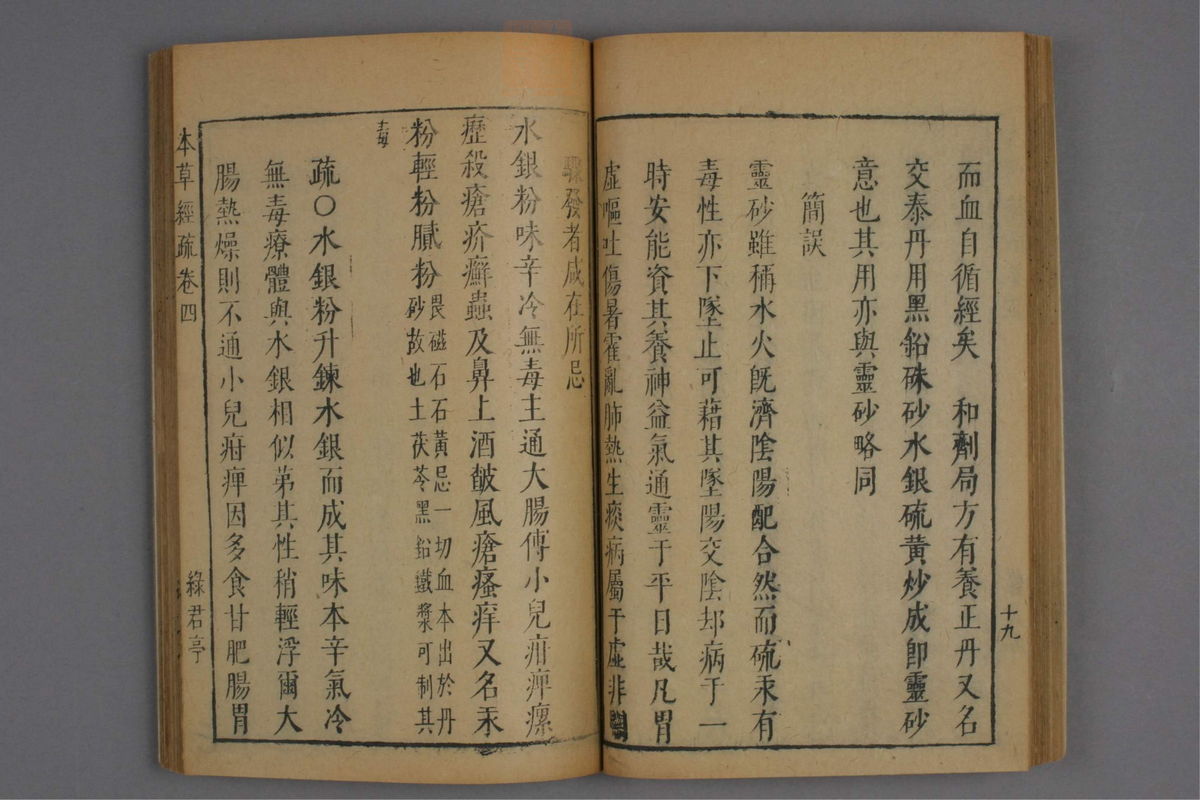 而血自循經矣　和劑局方有養正丹又名
交泰丹用黑鉛硃砂水銀硫黃炒成卽靈砂
意也其用亦與靈砂略同
簡誤
靈砂雖稱水火旣濟陰陽配合然而硫汞有
毒性亦下墜止可藉其墜陽交陰却病于一
時安能資其養神益氣通靈于平日哉凡胃
虛嘔吐傷暑霍亂肺熱生痰病屬于虛非
十九
驟發者咸在所忌
水銀粉味辛冷無毒主通大腸傅小兒疳痺瘰
癧殺瘡疥癬蟲及鼻上酒皶風瘡瘙痒又名汞
粉輕粉膩粉畏磁石石黃忌一切血本出於丹
砂故也土茯苓黑鉛鐵漿可制其
毒
疏〇水銀粉升鍊水銀而成其味本辛氣冷
無毒療體與水銀相似苐其性稍輕浮爾大
腸熱燥則不通小兒疳痺因多食甘肥腸胃
本草經疏卷四
綠君亭